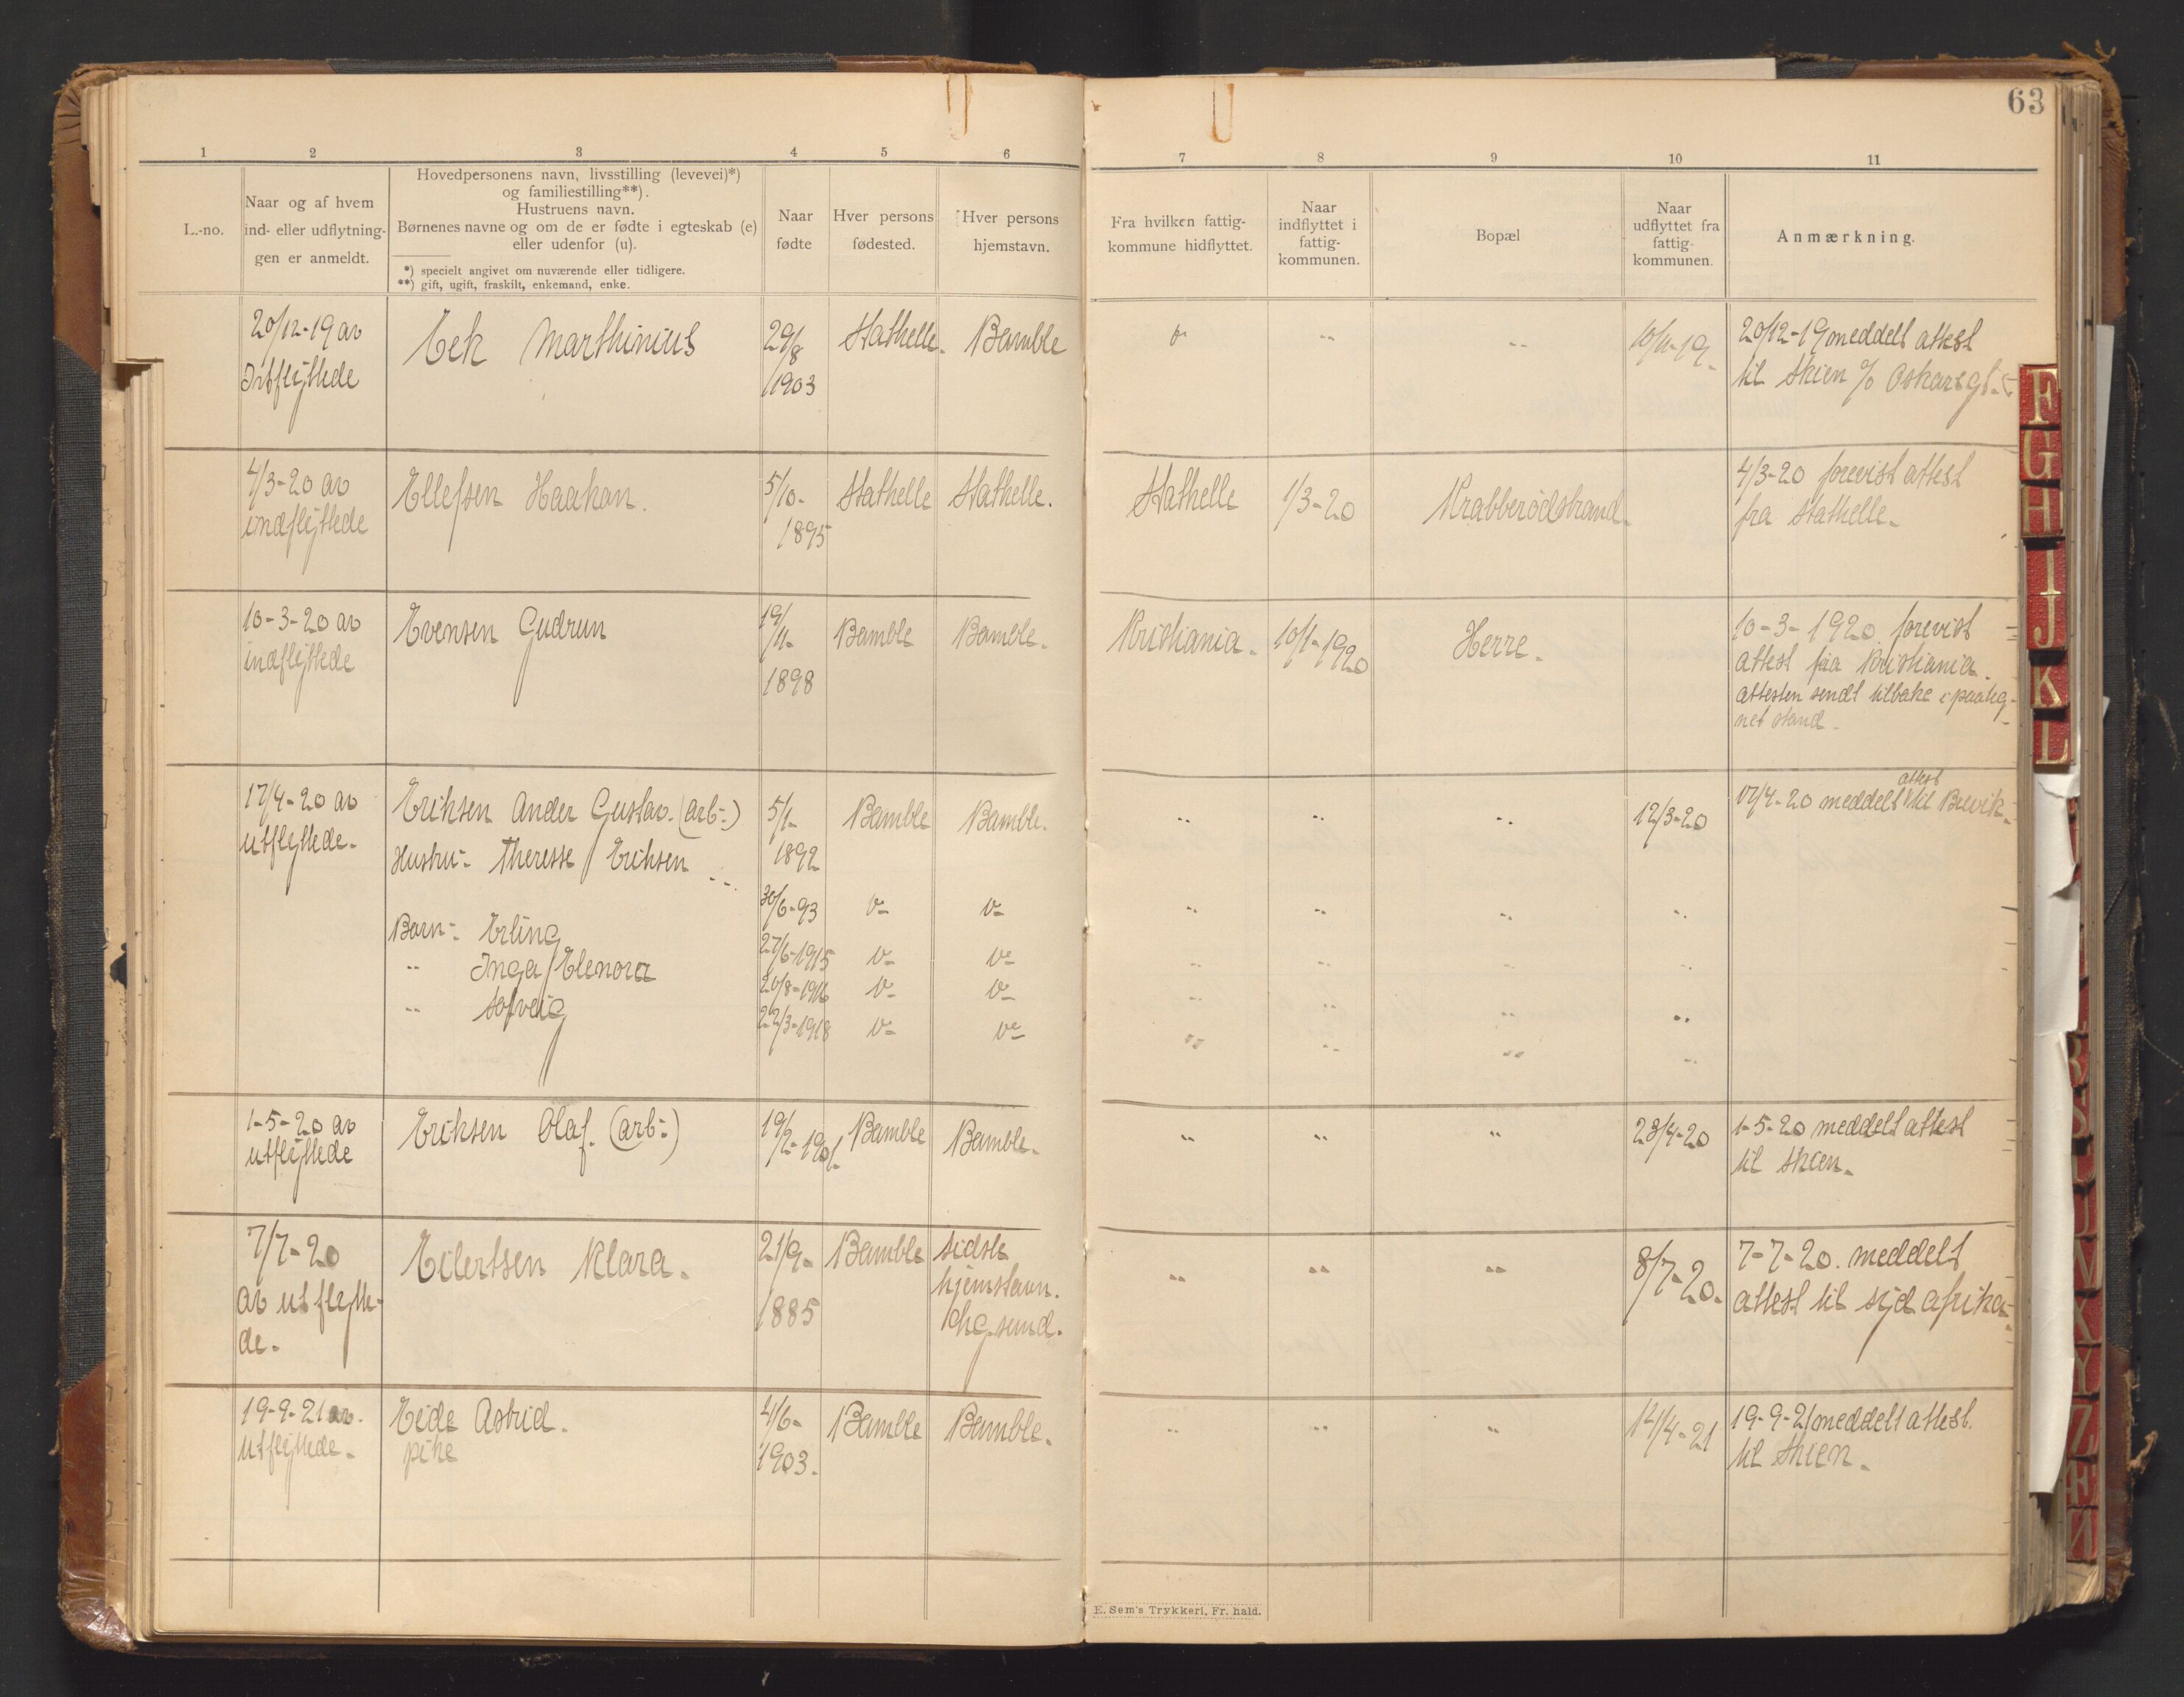 63
1 2 3 4 5 6 7 8 9 10 11
L.-no.
Naar og af hvem
ind- eller udflytning-
gen er anmeldt.
Hovedpersonens navn, livsstilling (levevei)*)
og familiestilling**).
Hustruens navn.
Børnenes navne og om de er fødte i egteskab (e)
eller udenfor (u).
*) specielt angivet om nuværende eller tidligere.
**) gift, ugift, fraskilt, enkemand, enke.
Naar
fødte
Hver persons
fødested.
Hver persons
hjemstavn.
Fra hvilken fattig-
kommune hidflyttet.
Naar
indflyttet i
fattig-
kommunen.
Bopæl
Naar
udflyttet fra
fattig-
kommunen.
Anmærkning.
20/12-19 av
Utflyttede
Eek Marthinius
29/8
1903
Stathelle.
Bamble
10/11-19.
20/12-19 meddelt attest
til Skien % Oskarsgt.
4/3-20 av
indflyttede
Ellefsen Haakan.
5/10-
1895
Stathelle
Stathelle.
Stathelle
1/3-20
Krabberødstrand.
4/3-20 forevist attest
fra Stathelle.
10-3-20 av
indflyttede
Evensen Gudrun
19/11-
1898
Bamble
Bamble.
Kristiania.
10/1-1920
Herre.
10-3-1920. forevist
attest fra Kristiania.
attesten sendt tilbake i paateg-
net stand.
17/4-20 av
utflyttede.
Eriksen Ander Gustav. (arb:)
5/1-
1892
Bamble
Bamble.
" " "
12/3-20
17/4-20 meddelt attest til Brevik.
Hustru: Theresse Eriksen
30/6-93
" " " "
Barn: Erling
27/6-1915
" " " "
" Inga Elenora
20/8-1916
" " " "
" Solveig
22/3-1918
" " " "
1-5-20 av
utflyttede
Eriksen Olaf. (arb:)
19/2-1901.
Bamble
Bamble.
" " "
23/4-20
1-5-20 meddelt attest
til Skien.
7/7-20
av utflytte-
de.
Eilertsen Klara.
21/9-
1885
Bamble
sidste
hjemstavn.
" " "
8/7-20.
7-7-20. meddelt
attest til syd afrika.
19-9-21 av.
utflyttede.
Eide Astrid.
pike
4/6-
1903.
Bamble
Bamble.
" " "
19-9-21 meddelt attest.
til Skien.
E. Sem's Trykkeri, Fr. hald.
F
G
H
I
J
K
L
V
X
Y
Z
Æ